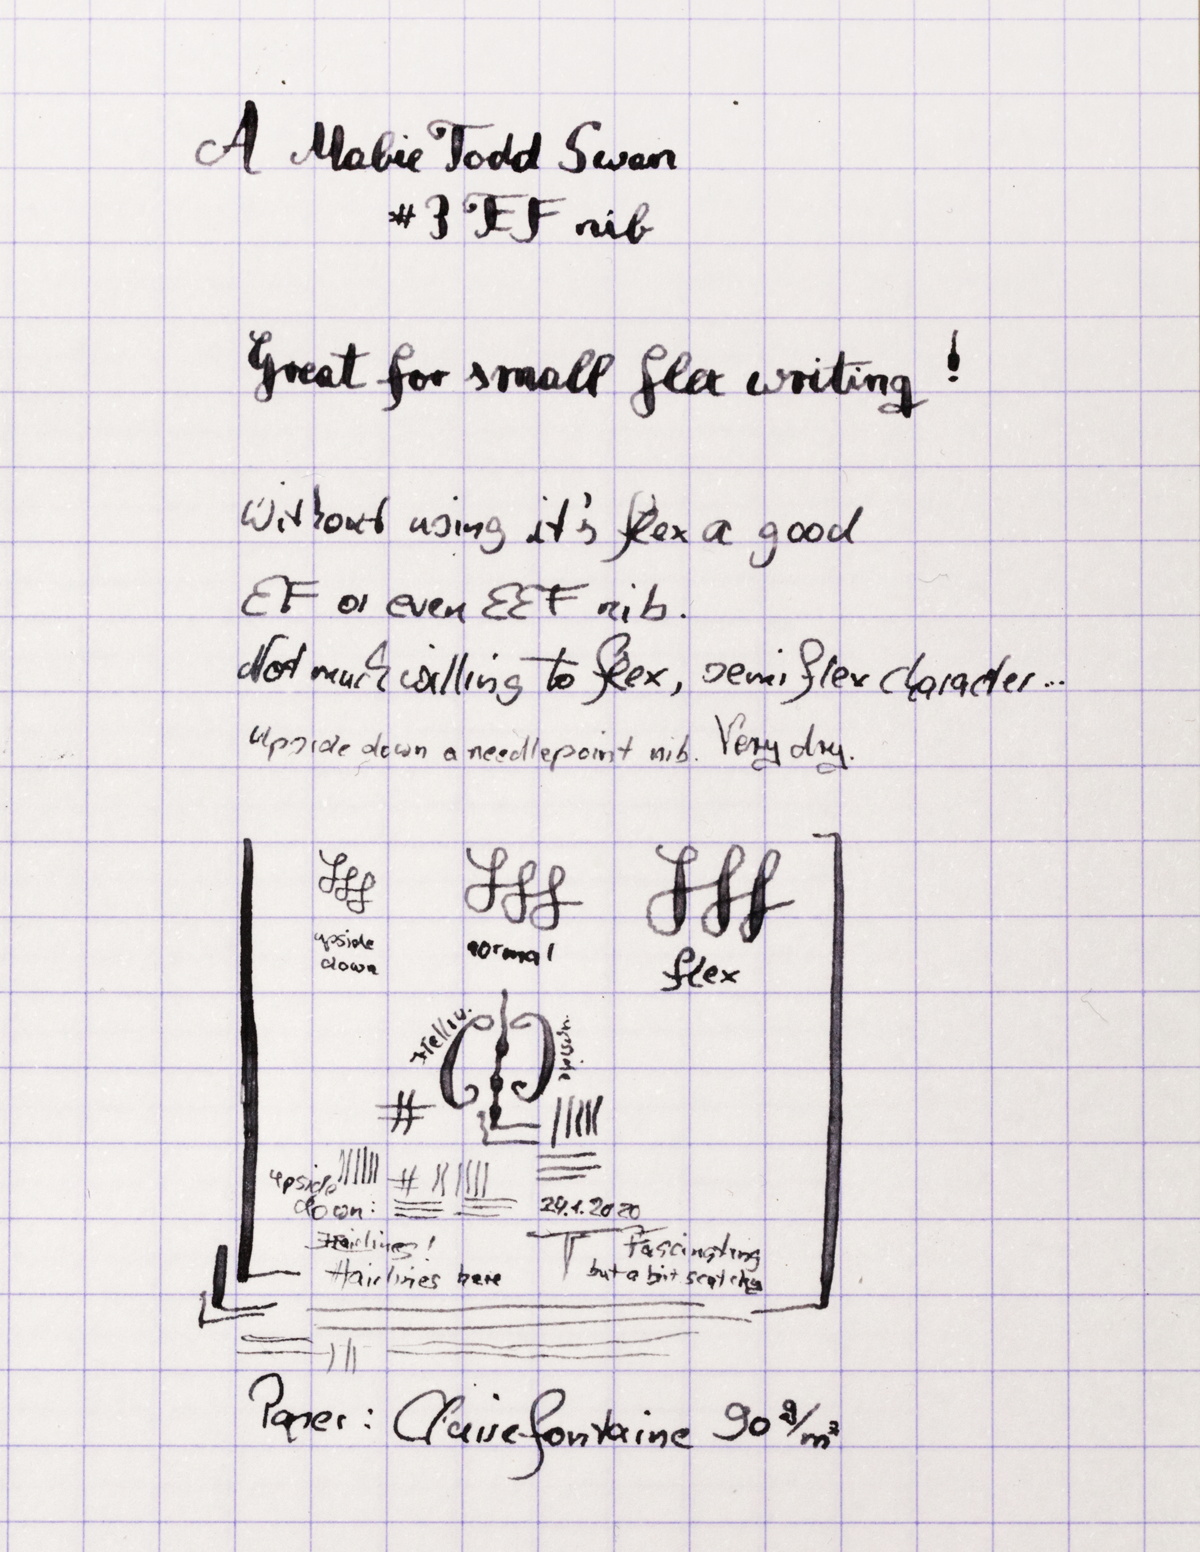 A Mabie Todd Swan
#3 EF nib
Great for small flex writing!
Without using it's flex a good
EF or even EEF nib.
Not much willing to flex, semiflex character...
upside down a needlepoint nib. Very dry.
fff fff fff
upside down normal flex
Hellow. upside.
#
upside down: #
29.1.2020
Hairlines!
Hairlines here
Fascinating
but a bit scatchy
Paper: Clairefontaine 90 g/m²